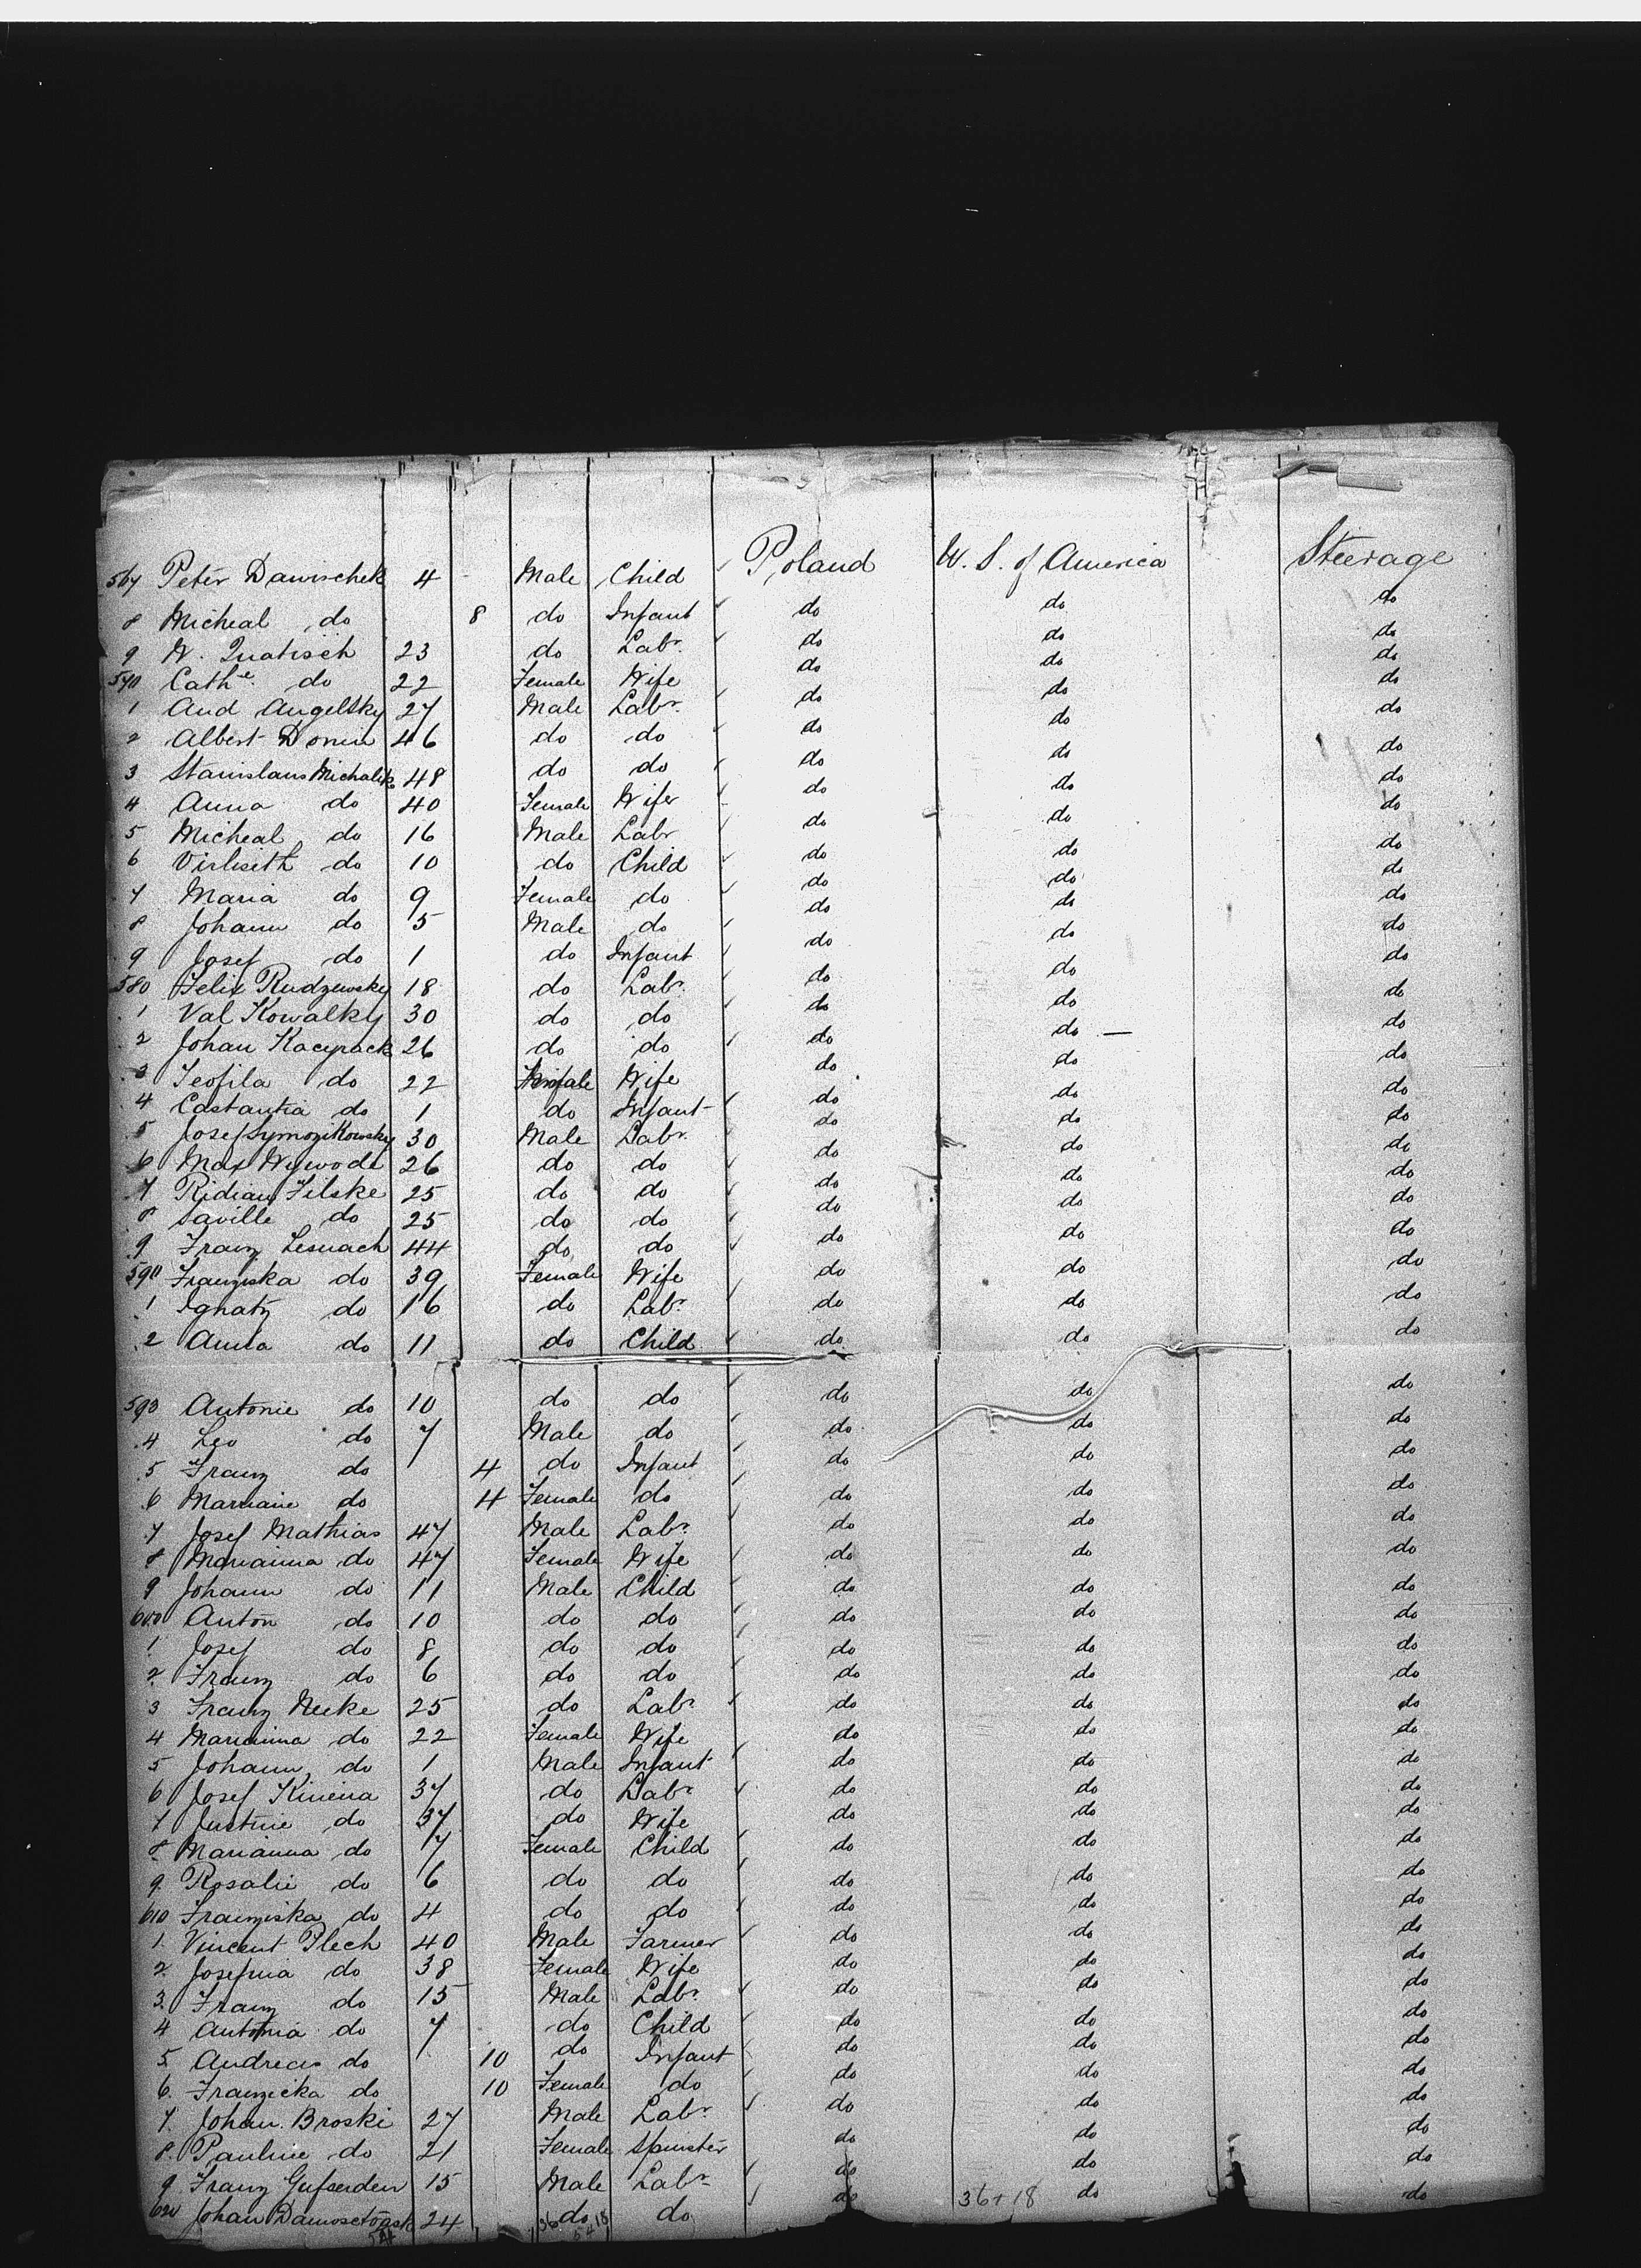 567 Peter Dawischek 4 Male Child Poland U. S. of America Steerage
8 Micheal do 8 do Infant do do do
9 W. Quatisch 23 do Labr. do do do
570 Cathe do 22 Female Wife do do do
1 And Angelsky 27 Male Labr. do do do
2 Albert Donen 46 do do do do do
3 Stanislaus Michalik 48 do do do do do
4 Anna do 40 Female Wife do do do
5 Micheal do 16 Male Labr do do do
6 do 10 do Child do do do
7 Maria do 9 Female do do do do
8 Johann do 5 Male do do do do
9 Josef do 1 do Infant do do do
580 Felix Rudzewsky 18 do Labr. do do do
1 Val Kowalky 30 do do do do do
2 Johan Kacyrack 26 do do do do — do
3 Teofila do 22 Female Wife do do do
4 Costantia do 1 do Infant do do do
5 Josef Symozikowsky 30 Male Labr. do do do
6 Max Wywode 26 do do do do do
7 Ridian Filske 25 do do do do do
8 Saville do 25 do do do do do
9 Franz Lesnach 44 do do do do do
590 Franziska do 39 Female Wife do do do
1 Ignatz do 16 do Labr. do do do
2 Anna do 11 do Child do do do
593 Antonie do 10 do do do do do
4 Leo do 7 Male do do do do
5 Franz do 4 do Infant do do do
6 Marianne do 4 Female do do do do
7 Josef Mathias 47 Male Labr. do do do
8 Marianna do 47 Female Wife do do do
9 Johann do 11 Male Child do do do
600 Anton do 10 do do do do do
1 Josef do 8 do do do do do
2 Franz do 6 do do do do do
3 Franz Neike 25 do Labr. do do do
4 Marianna do 22 Female Wife do do do
5 Johann do 1 Male Infant do do do
6 Josef Kinena 37 do Labr. do do do
7 Justine do 37 do Wife do do do
8 Marianna do 7 Female Child do do do
9 Rosalie do 6 do do do do do
610 Franziska do 4 do do do do do
1 Vincent Plech 40 Male Farmer do do do
2 Josefina do 38 Female Wife do do do
3 Franz do 15 Male Labr. do do do
4 Antonia do 7 do Child do do do
5 Andreas do 10 do Infant do do do
6 Franzicka do 10 Female do do do do
7 Johan Broski 27 Male Labr. do do do
8 Pauline do 21 Female Spinster do do do
9 Franz Gufserden 15 Male Labr. do do do
620 Johan 24 do do do 36+18 do do